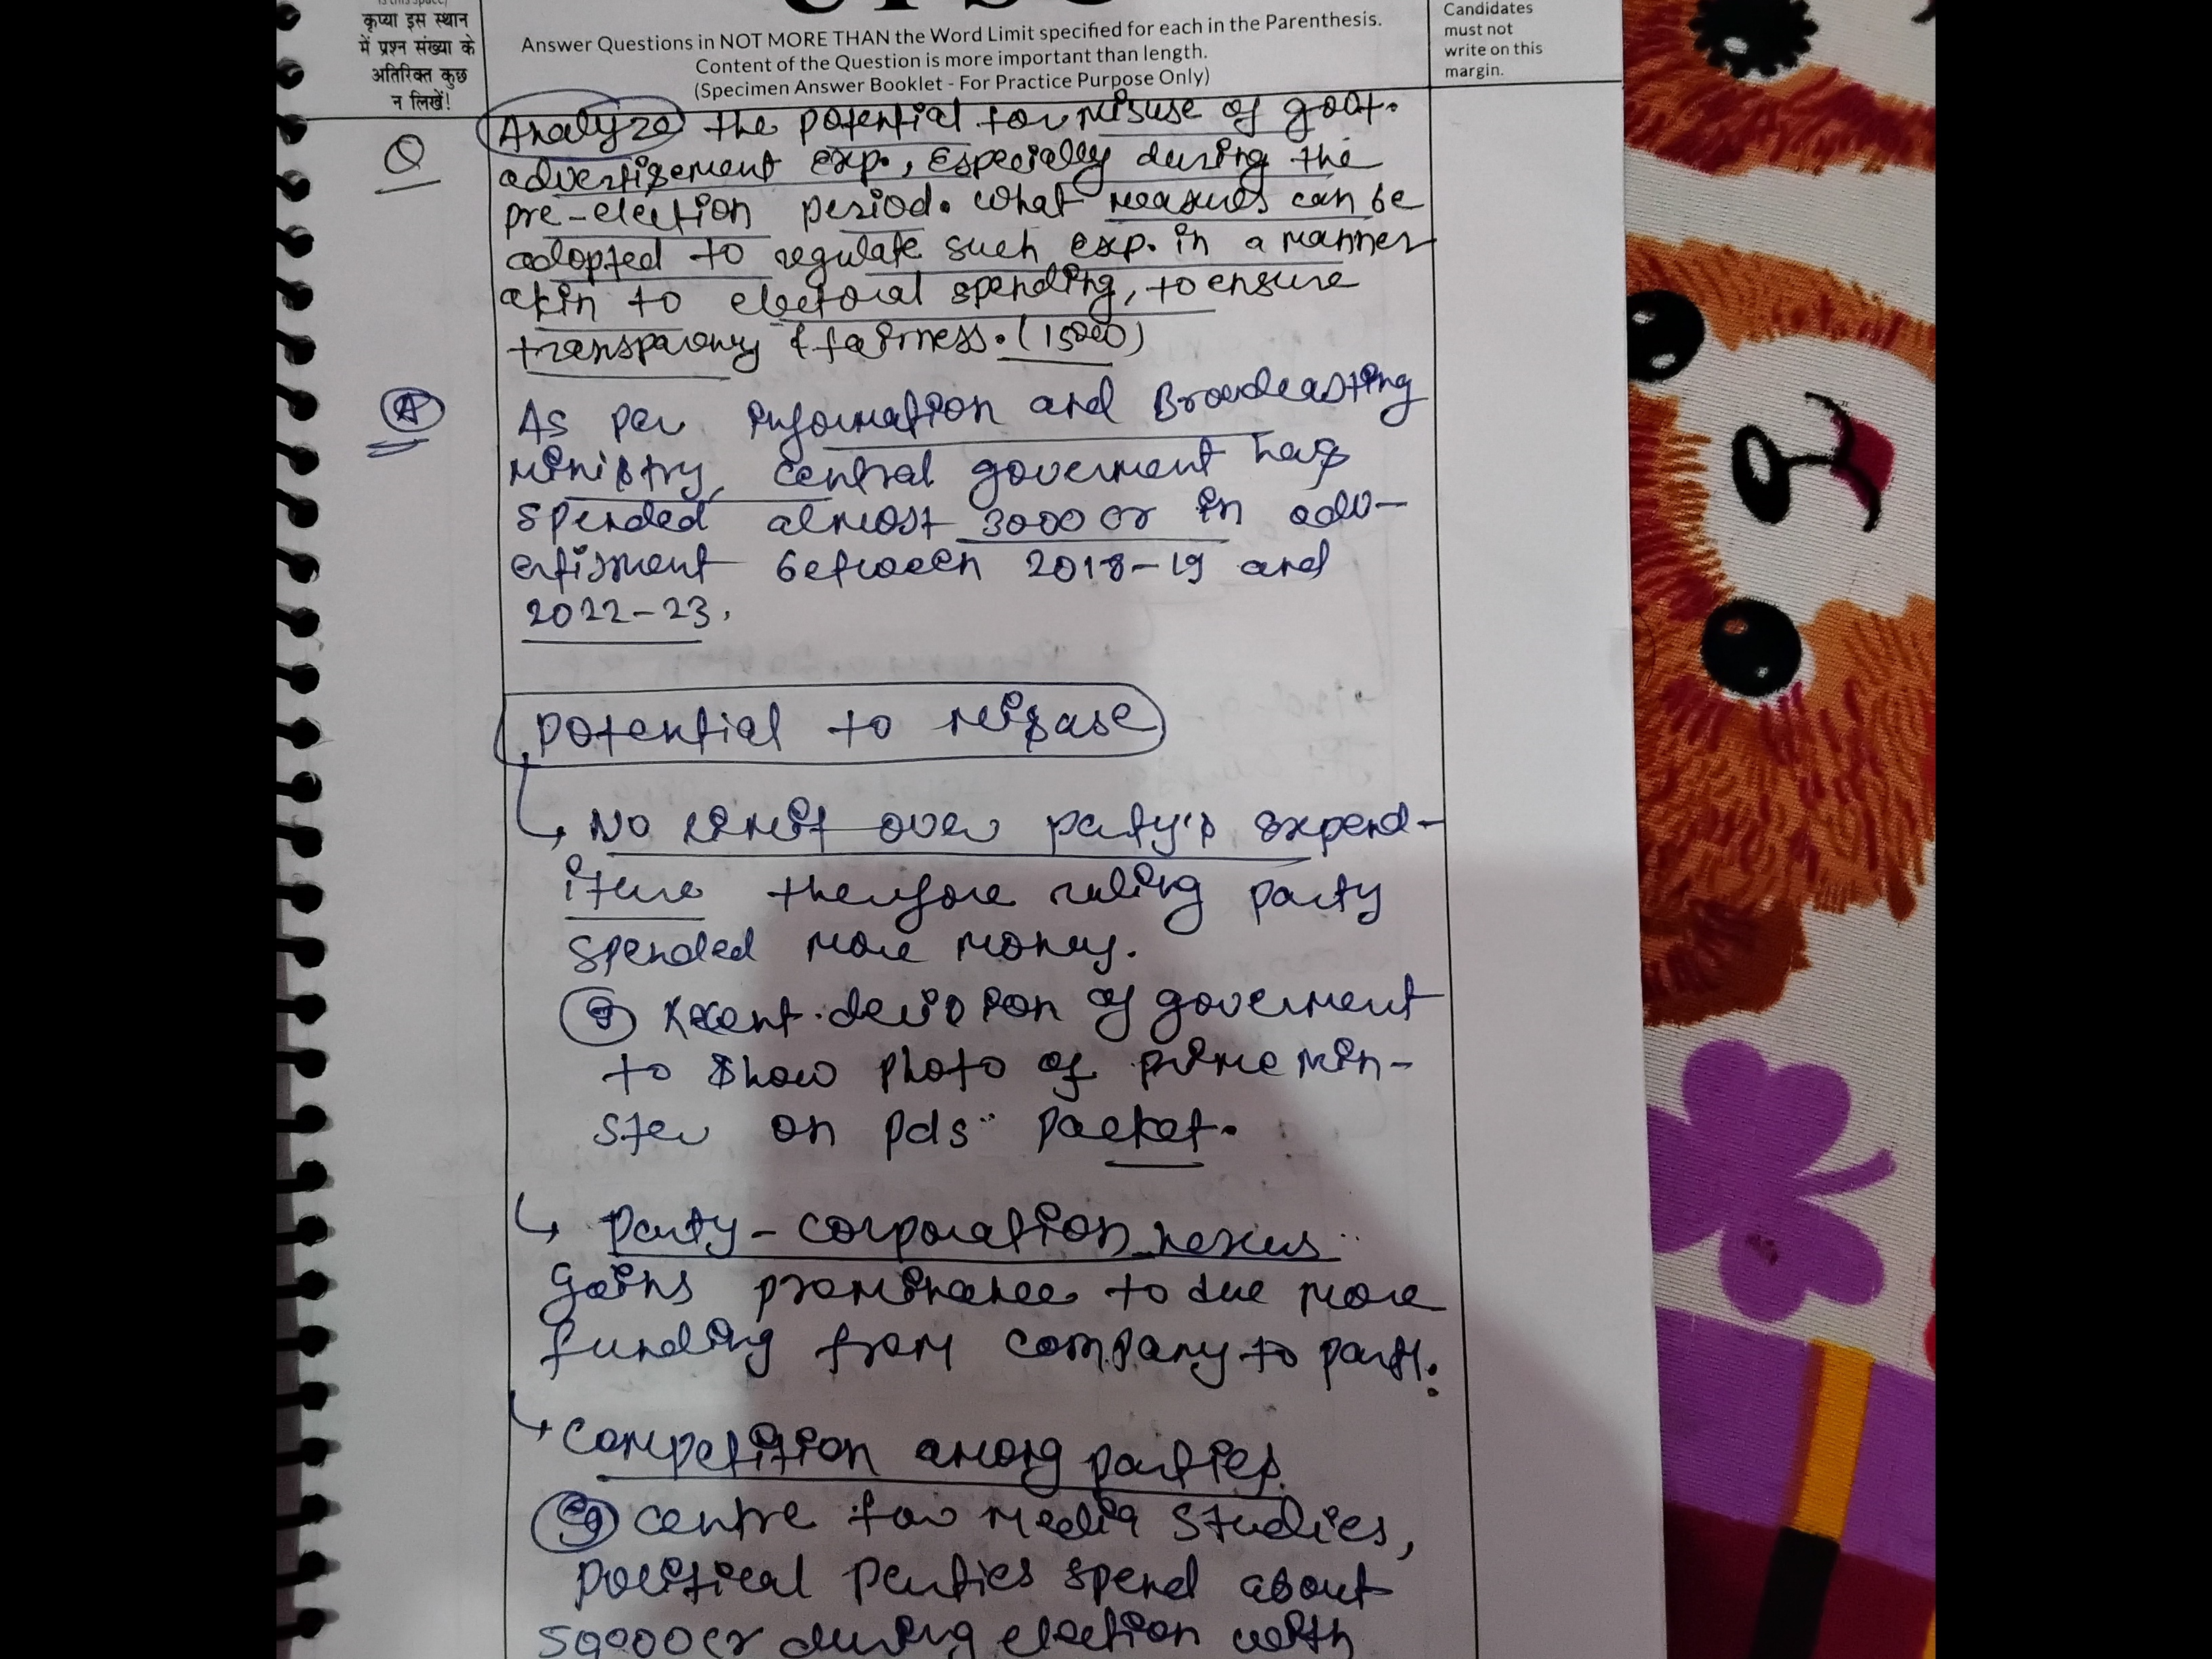 is this space)
कृप्या इस स्थान
में प्रश्न संख्या के
अतिरिक्त कुछ
न लिखें!
Answer Questions in NOT MORE THAN the Word Limit specified for each in the Parenthesis.
Content of the Question is more important than length.
(Specimen Answer Booklet - For Practice Purpose Only)
Candidates
must not
write on this
margin.
Q
Analyze the potential for misuse of govt.
advertisement exp., especially during the
pre-election period. what measures can be
adopted to regulate such exp. in a manner
akin to electoral spending, to ensure
transparency & fairness. (150
A
As per Information and Broadcasting
ministry, central goverment has
spended almost 3000 cr in adv-
ertisment between 2018-19 and
2022-23.
Potential to misuse
No limit over party's expend-
iture therefore ruling party
spended more money.
Recent decision of goverment
to show photo of prime min-
ster on pds packet.
Party-corporation nexus
gains prominance to due more
funding from company to
Competition among parties.
eg centre for Media Studies,
political parties spend about
cr during election with